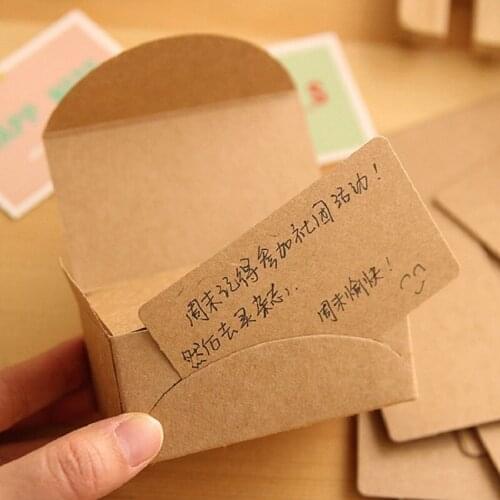 周末记得参加社团活动！
然后去买杂志，
周末愉快！